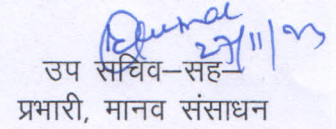 27/11/23
उप सचिव–सह–
प्रभारी, मानव संसाधन